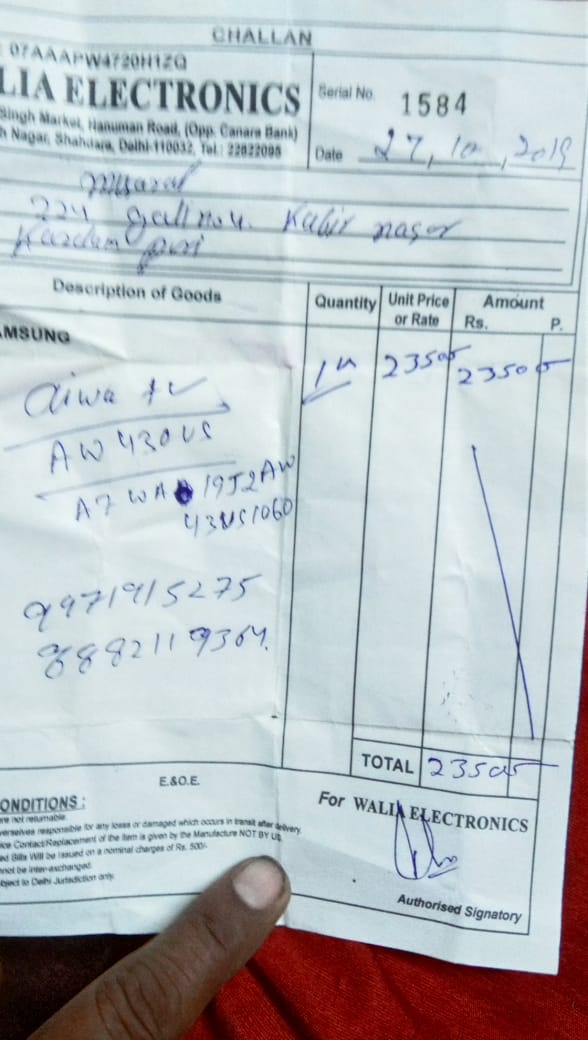 CHALLAN
: 07AAAPW4720H1ZQ
LIA ELECTRONICS
Singh Market, Hanuman Road, (Opp. Canara Bank)
h Nagar, Shahdara, Delhi-110032, Tel.: 22822095
Serial No. 1584
Date 27,10,2019
224 gali no 4. Kabir nagar
Kardam puri
Description of Goods Quantity Unit Price or Rate Amount Rs. P.
AMSUNG
1 23505 23505
aiwa tv
AW430US
A7WA 19J2AW
43US1060
9971915275
8882119364.
TOTAL 23505
E.&O.E.
For WALIA ELECTRONICS
ONDITIONS :
are not returnable.
erselves responsible for any loss or damaged which occurs in transit after delivery.
ice Contact/Replacement of the item is given by the Manufacture NOT BY US.
ed Bills Will be issued on a nominal charges of Rs. 500/-
nnot be inter-exchanged.
bject to Delhi Jurisdiction only.
Authorised Signatory